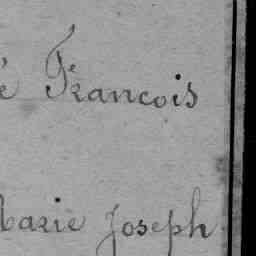 é Francois
Marie Joseph